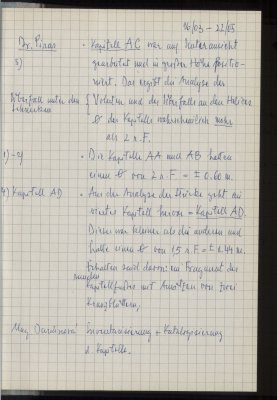 16/03 - 22/05
Dr. Piras • Kapitell AC war auf Unteransicht
3) gearbeitet und in großer Höhe positio-
niert. Das ergibt die Analyse der
Überfall unter den Voluten und des Überfalls an den Helices
Ø des Kapitells wahrscheinlich mehr
als 2 r.F.
1)-2) • Die Kapitelle AA und AB hatten
einen Ø von 2 r.F. = ± 0.60 m.
4) Kapitell AD • Aus der Analyse der Stücke geht ein
viertes Kapitell hervor = Kapitell AD.
Dieses war kleiner als die anderen und
hatte einen Ø von 1.5 r.F = ± 0.44 m.
Erhalten sind davon: ein Fragment des
Kapitellfußes mit Ansätzen von zwei
Kranzblättern.
Mag. Inventarisierung + Katalogisierung
d. Kapitelle.